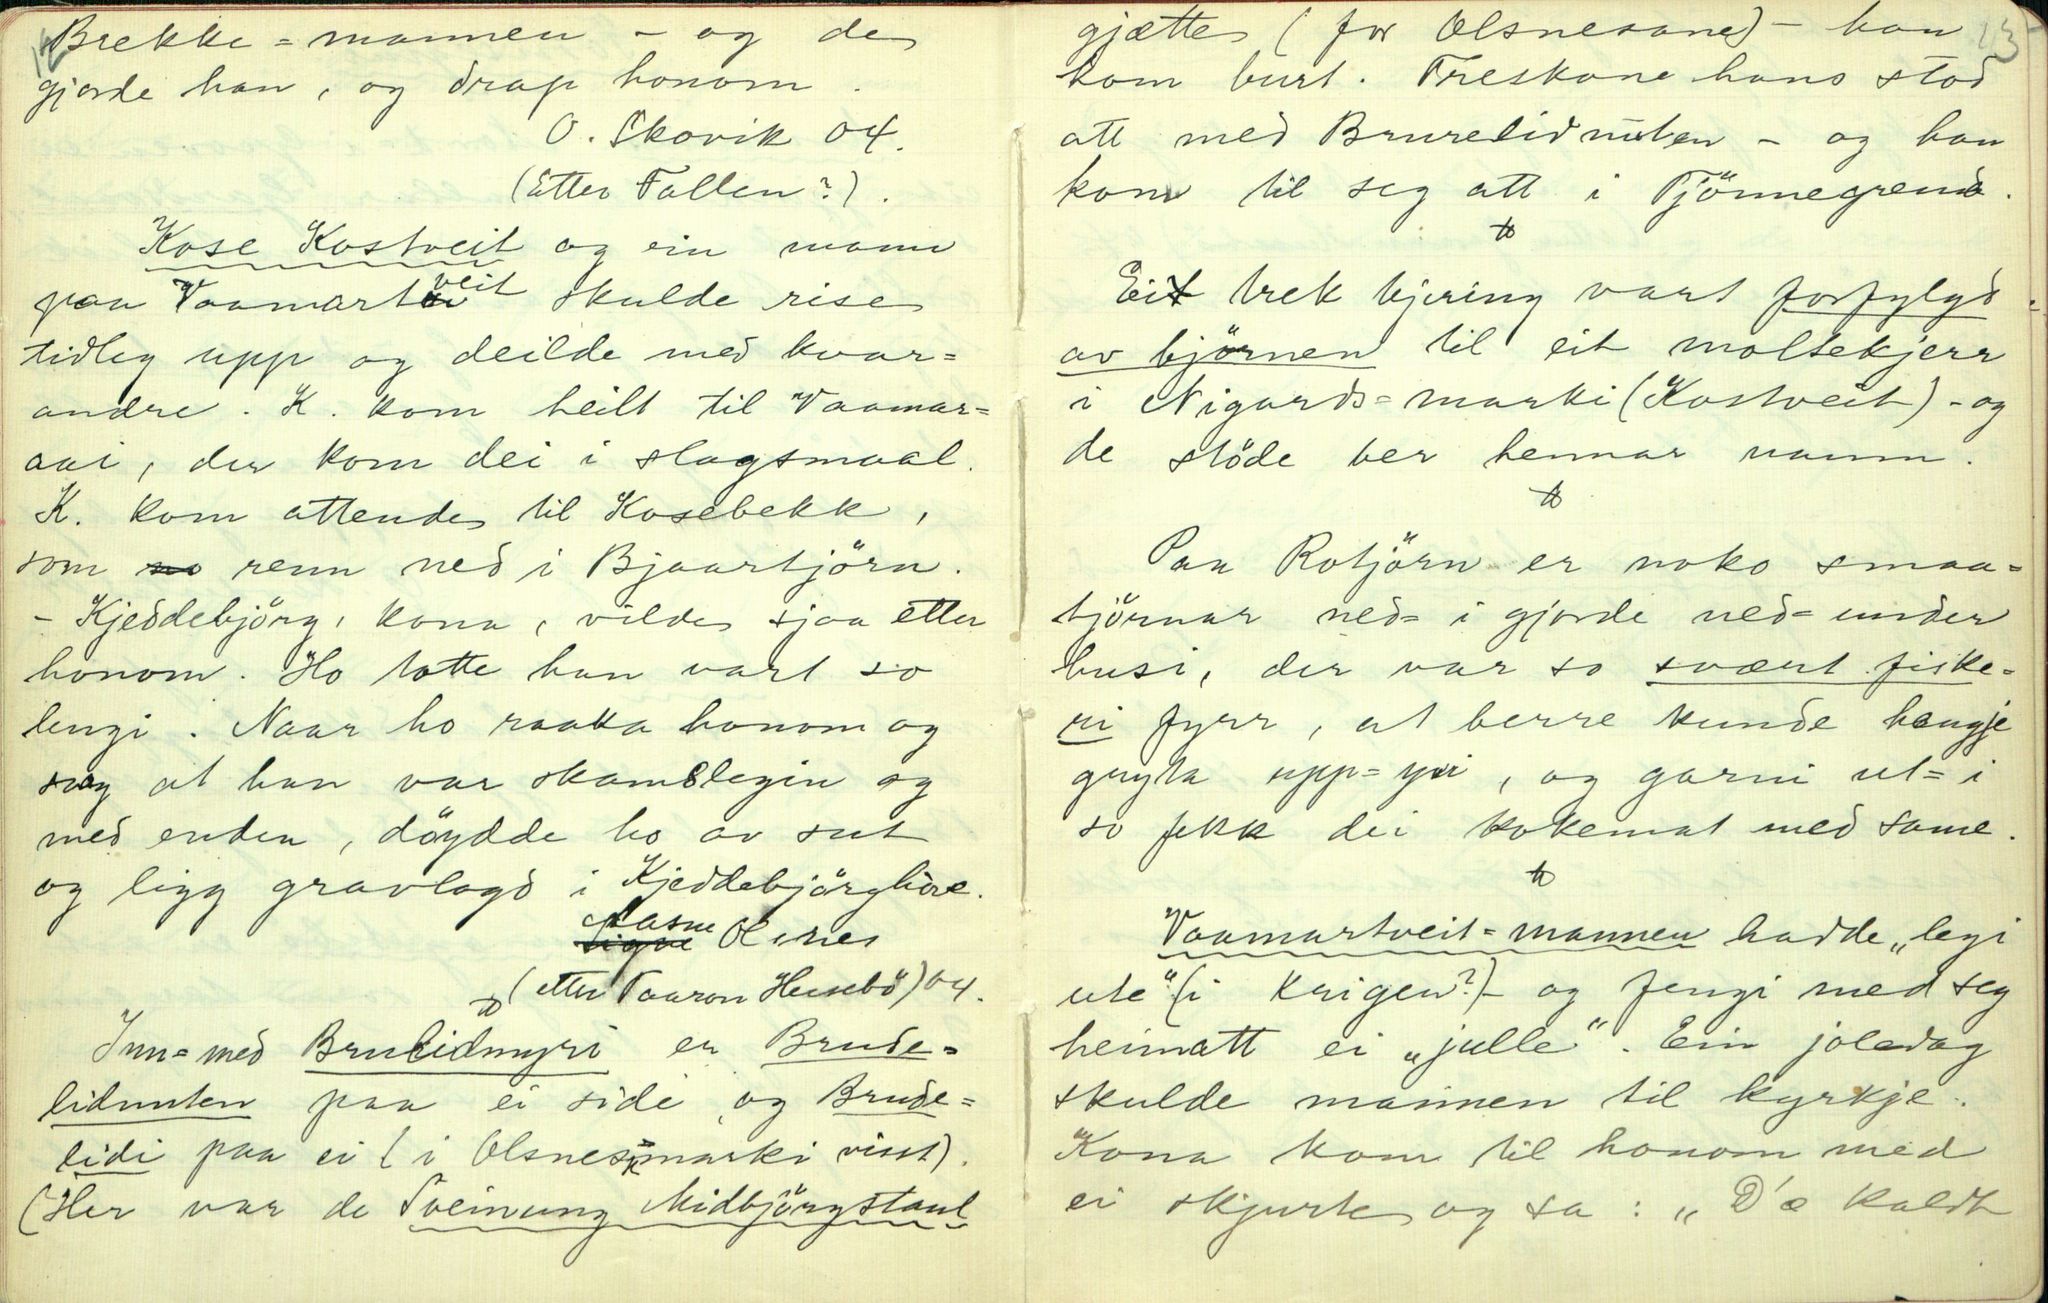 12
Brekke-mannen - og de
gjorde han, og drap honom.
O. Skovik 04.
(Etter Fallen?).
Kose Kostveit og ein mann
paa Vaamartveit skulde rise
tidleg upp og deilde med kvar=
andre. K. kom heilt til Vaamar=
aai, der kom dei i slagsmaal.
K. kom attende til Kosebekk,
som renn ned i Bjaartjörn.
- Kjeddebjörg, kona, vilde sjaa etter
honom. Ho totte han vart so
lengi. Naar ho raaka honom og
saag at han var skamslegin og
med enden, döydde ho av sut
og ligg gravlagd i Kjeddebjörg
Aasne Olsnes
(etter Taaron Husebö) 04.
Inn=med Brulidmyri er Brude=
lidnuten paa ei side og Brude=
lidi paa ei (i Olsnes=marki visst).
(Her var de Sveinung Midbjörgstaul
13
gjætte (for Olsnesane) - han
kom burt. Treskone hans stod
att med Brurelidnuten - og han
kom til seg att i Tjönnegrend.
Eit trek bjering vart forfylgd
av björnen til eit moltekjerr
i Nigards=marki (Kostveit) - og
de stöde ber hennar namn.
Paa Rotjörn er noko smaa=
tjörnar ned= i gjorde ned=under
husi, der var so svært fiske=
ri fyrr, at berre kunde hengje
gryta upp=yvi, og garni ut=i
so fekk dei kokemat med same.
Vaamartveit=mannen hadde „legi
ute" (i Krigen?) - og fengi med seg
heimatt ei „julle". Ein joledag
skulde mannen til kyrkje.
Kona kom til honom med
ei skjurte og sa: „D'æ kaldt